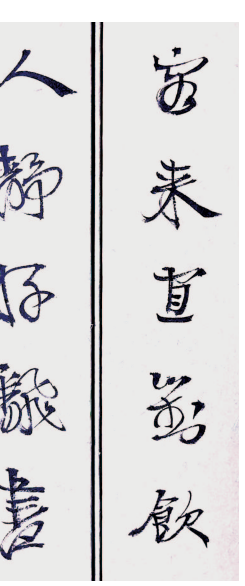 客来宜對飲
人靜好書